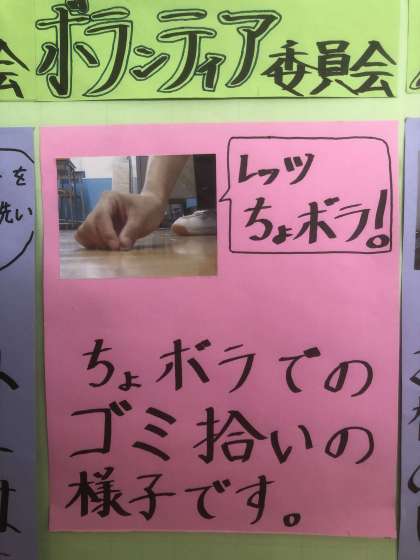 会
ボランティア委員会
を
洗い
レッツ
ちょボラ!
ちょボラでの
ゴミ拾いの
様子です。